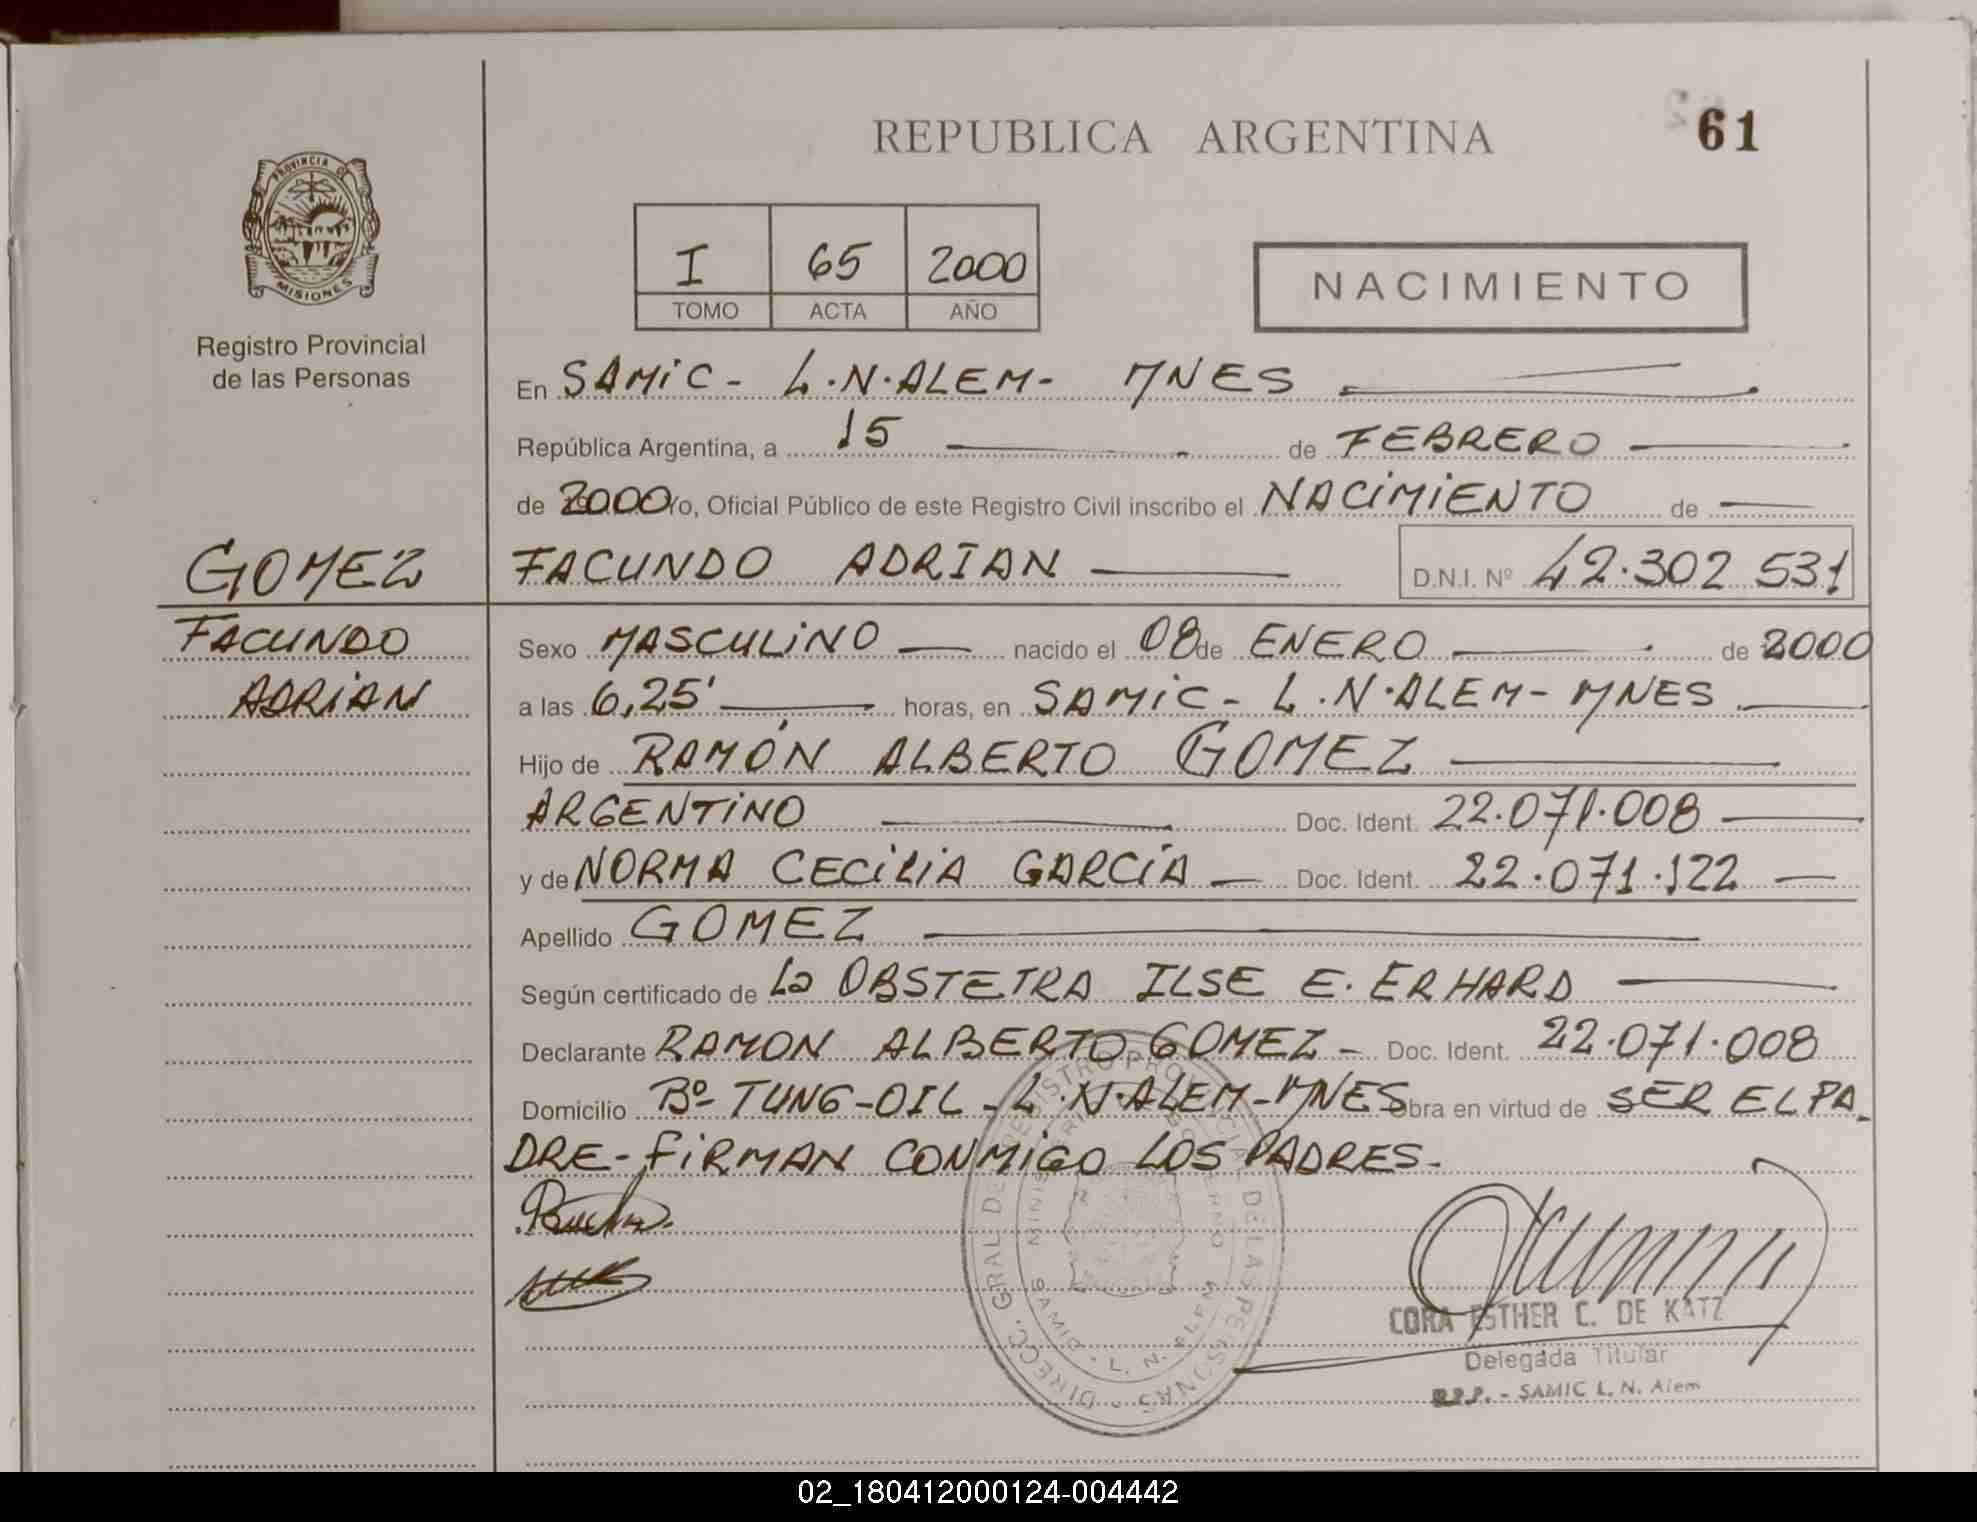 REPUBLICA ARGENTINA
61
PROVINCIA DE
MISIONES
Registro Provincial
de las Personas
I 65 2000
TOMO ACTA AÑO
NACIMIENTO
En SAMIC - L.N.ALEM- MNES
República Argentina, a 15 de FEBRERO
de 2000 Yo, Oficial Público de este Registro Civil inscribo el NACIMIENTO de
GOMEZ
FACUNDO ADRIAN D.N.I. Nº 42.302 531
FACUNDO
ADRIAN
Sexo MASCULINO nacido el 08 de ENERO de 2000
a las 6,25' horas, en SAMIC - L.N.ALEM - MNES
Hijo de RAMÓN ALBERTO GOMEZ
ARGENTINO Doc. Ident. 22.071.008
y de NORMA CECILIA GARCÍA Doc. Ident. 22.071.122
Apellido GOMEZ
Según certificado de La OBSTETRA ILSE E. ERHARD
Declarante RAMON ALBERTO GOMEZ - Doc. Ident. 22.071.008
Domicilio Bº TUNG-OIL - L.N.ALEM-MNES Obra en virtud de SER EL PA
DRE - FIRMAN CONMIGO LOS PADRES.
DIRECC. GRAL. DE REGISTRO PROVINCIAL DE LAS PERSONAS
SAMIC - L. N. ALEM
CORA ESTHER C. DE KATZ
Delegada Titular
R.P.P. - SAMIC L. N. Alem
02_180412000124-004442